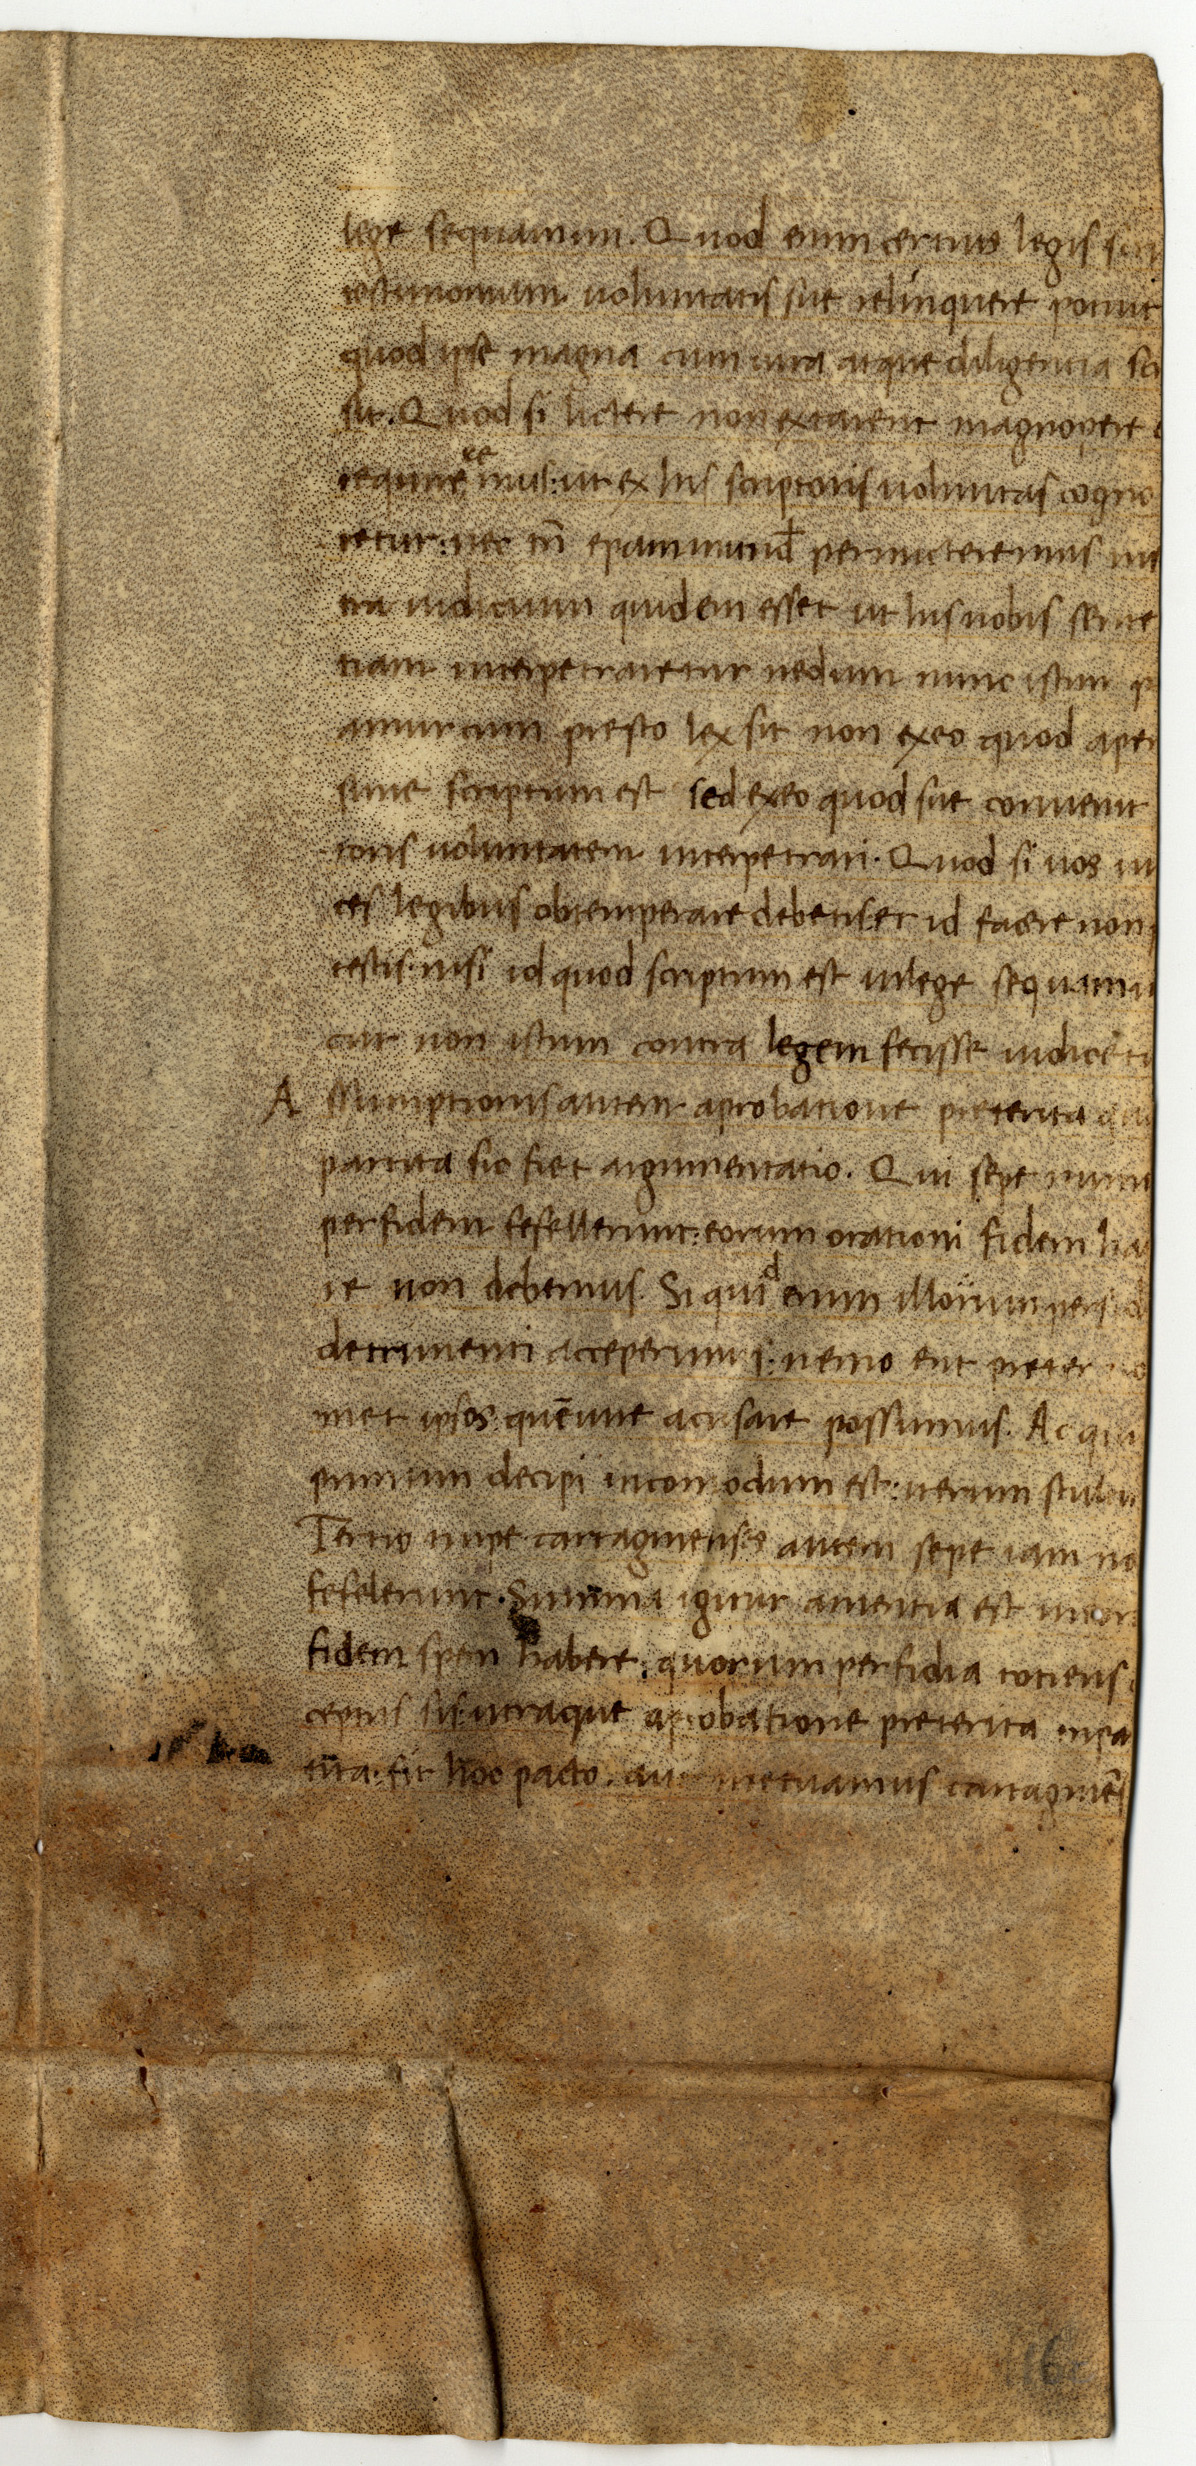 lege sequamini. Quod enim certius legis scri
testimonium voluntatis sue relinquere potuit
quod ipse magna cum cura atque diligentia sc
sit. Quod si lictere non extarent magnopere
requirereemus: ut ex his scriptoris voluntas cogno
retur: nec tn̄ epaminund̄ permicteremus
tra iudicium quidem esset ut his nobis sente
tiam interpetraretur nedum nunc istum p
amur cum presto lex sit non exeo quod aper
sime scriptum est sed exeo quod sue convenit
toris voluntatem interpetrari. Quod si vos iu
ces legibus obtemperare debetis: et id facere non
testis: nisi id quod scriptum est inlege sequami
cur non istum contra legem fecisse iudicetis
A ssumptionis autem aprobatione preterita qua
partita sic fiet argumentatio. Qui sepe nume
per fidem fefellerunt: eorum orationi fidem ha
re non debemus. Si quid enim illorum perfid
detrimenti acceperimus: nemo erit preter no
met ipsos quē iure acusare possumus. Ac qui
primum decipi incomodum est: iterum stultu
Tertio turpe cartaginenses autem sepe iam no
fefelerunt. Summa igitur amentia est ineor
fidem spem habere: quorum perfidia totiens
ceptus sis: utraque aprobatione preterita
tita. fit hoc pacto. aut metuamus cartaginē
16